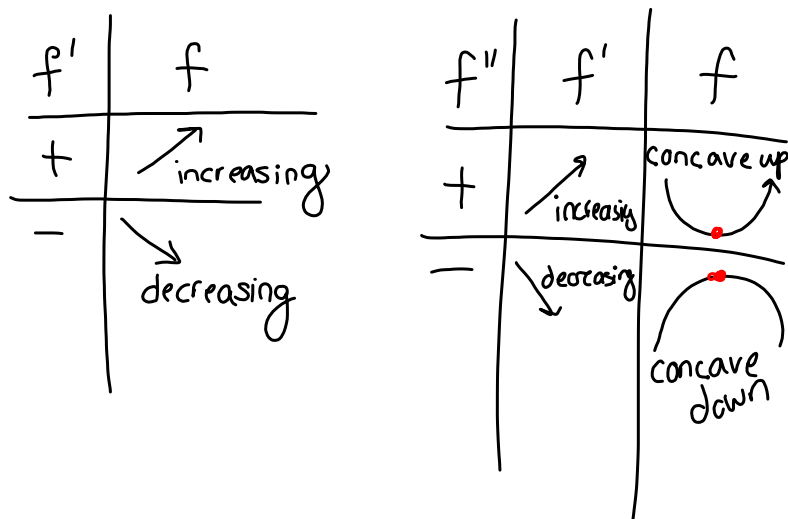 f' f
+ increasing
− decreasing
f'' f' f
+ increasiy concave up
− decreasing
concave
down